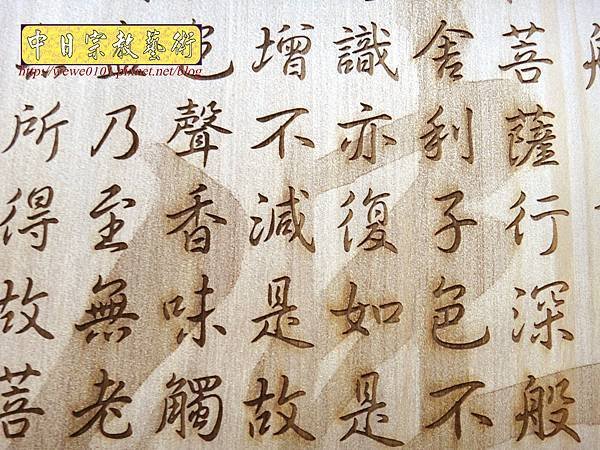 中日宗教藝術
菩薩行深般
舍利子色不
識亦復如是
增不減是故
色聲香味觸
乃至無老
所得故菩